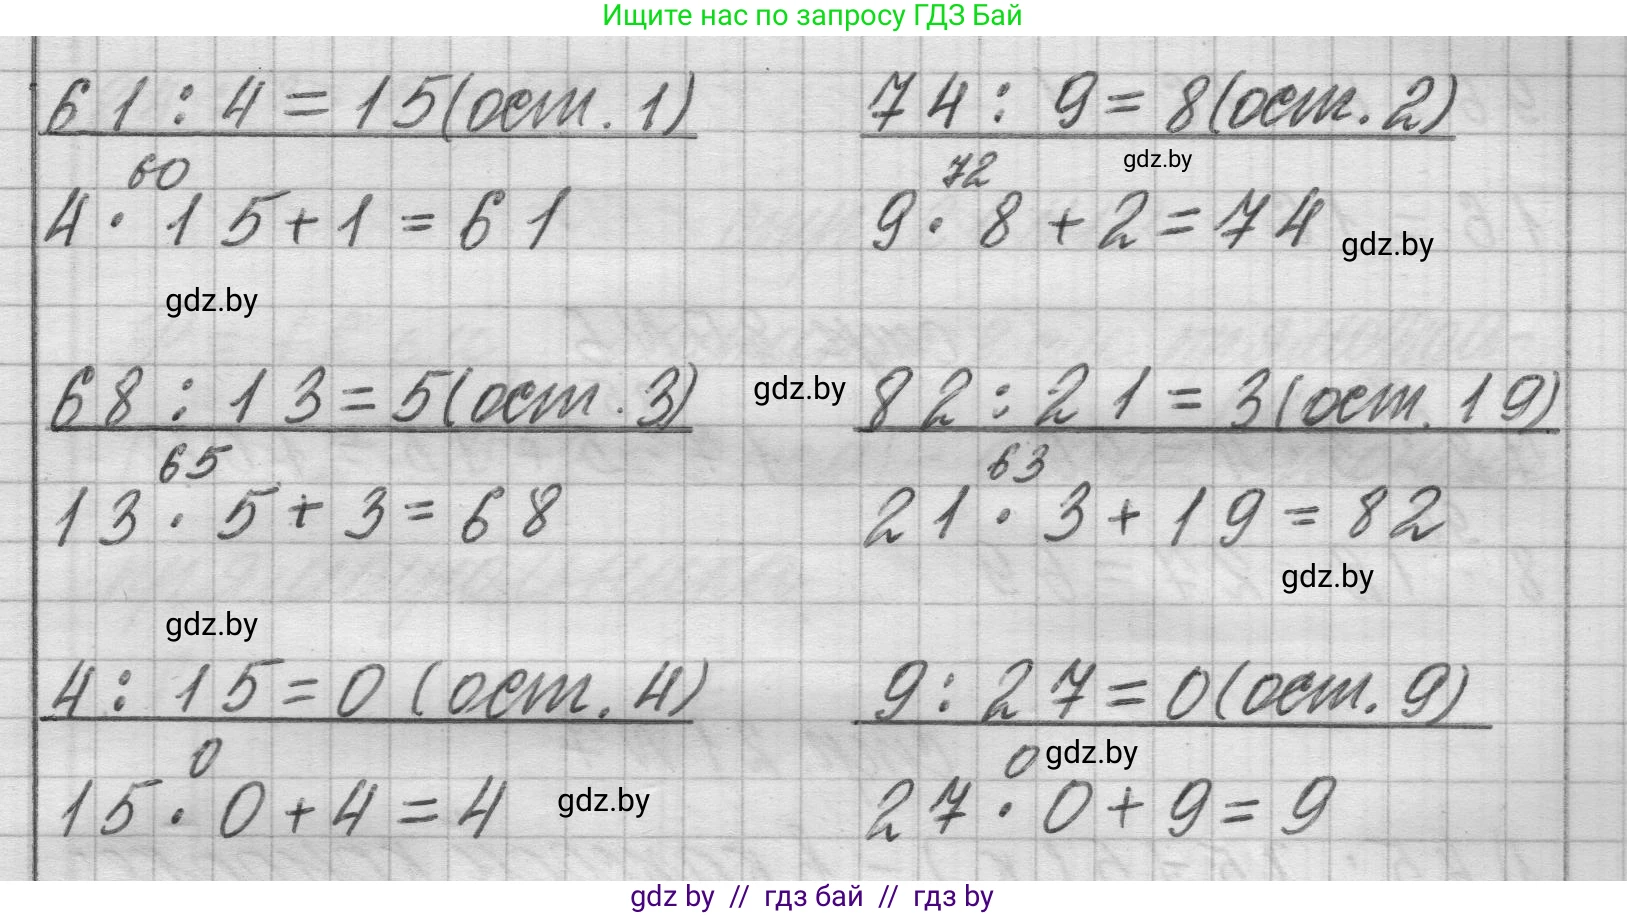 Ищите нас по запросу ГДЗ Бай
61 : 4 = 15 (ост. 1)
60
4 · 15 + 1 = 61
gdz.by
74 : 9 = 8 (ост. 2)
72
gdz.by
9 · 8 + 2 = 74
gdz.by
68 : 13 = 5 (ост. 3)
gdz.by
65
13 · 5 + 3 = 68
gdz.by
82 : 21 = 3 (ост. 19)
63
21 · 3 + 19 = 82
gdz.by
4 : 15 = 0 (ост. 4)
0
15 · 0 + 4 = 4
gdz.by
9 : 27 = 0 (ост. 9)
0
gdz.by
27 · 0 + 9 = 9
gdz by // гдз бай // гдз by